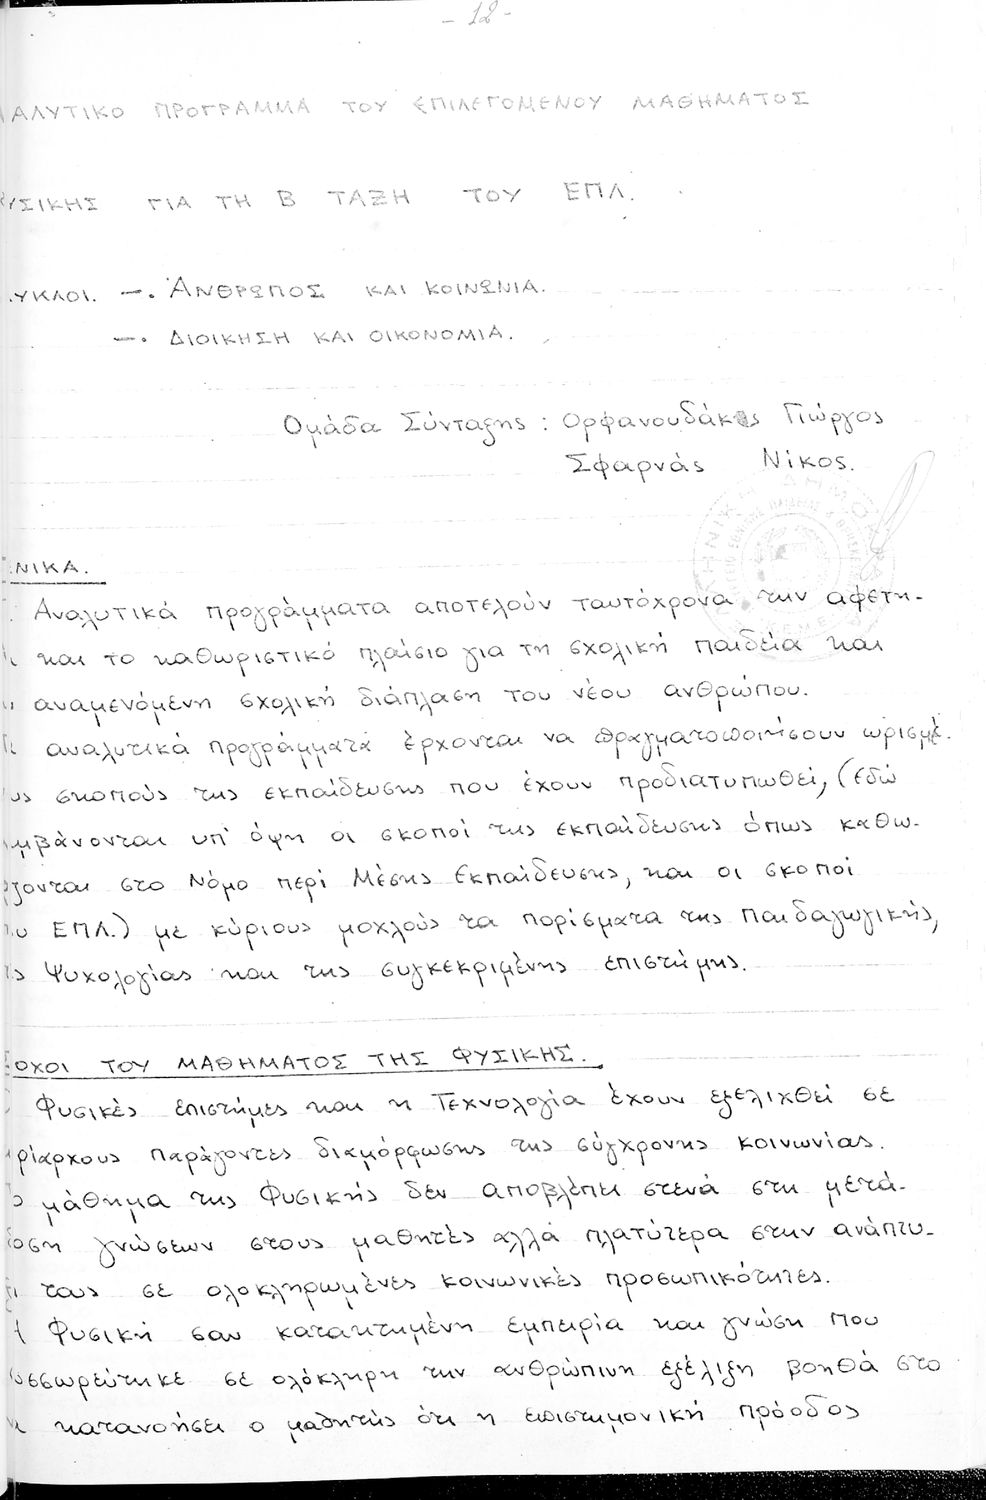 - 12 -
ΑΛΥΤΙΚΟ ΠΡΟΓΡΑΜΜΑ ΤΟΥ ΕΠΙΛΕΓΟΜΕΝΟΥ ΜΑΘΗΜΑΤΟΣ
ΥΣΙΚΗΣ ΓΙΑ ΤΗ Β ΤΑΞΗ ΤΟΥ ΕΠΛ.
ΥΚΛΟΙ. —. ΑΝΘΡΩΠΟΣ ΚΑΙ ΚΟΙΝΩΝΙΑ.
—. ΔΙΟΙΚΗΣΗ ΚΑΙ ΟΙΚΟΝΟΜΙΑ.
Ομάδα Σύνταξης : Ορφανουδάκης Γιώργος
Σφαρνάς Νίκος.
ΝΙΚΑ.
Αναλυτικά προγράμματα αποτελούν ταυτόχρονα την αφετη-
και το καθωριστικό πλαίσιο για τη σχολική παιδεία και
αναμενόμενη σχολική διάπλαση του νέου ανθρώπου.
αναλυτικά προγράμματα έρχονται να πραγματοποιήσουν ωρισμέ-
υς σκοπούς της εκπαίδευσης που έχουν προδιατυπωθεί, (εδώ
μβάνονται υπ' όψη οι σκοποί της εκπαίδευσης όπως καθω-
ζονται στο Νόμο περί Μέσης Εκπαίδευσης, και οι σκοποί
υ ΕΠΛ.) με κύριους μοχλούς τα πορίσματα της Παιδαγωγικής,
ς Ψυχολογίας και της συγκεκριμένης επιστήμης.
ΟΧΟΙ ΤΟΥ ΜΑΘΗΜΑΤΟΣ ΤΗΣ ΦΥΣΙΚΗΣ.
Φυσικές επιστήμες και η Τεχνολογία έχουν εξελιχθεί σε
ρίαρχους παράγοντες διαμόρφωσης της σύγχρονης κοινωνίας.
ο μάθημα της Φυσικής δεν αποβλέπει στενά στη μετά-
δοση γνώσεων στους μαθητές αλλά πλατύτερα στην ανάπτυ-
ξι τους σε ολοκληρωμένες κοινωνικές προσωπικότητες.
Η Φυσική σαν κατακτημένη εμπειρία και γνώση που
υσσωρεύτηκε σε ολόκληρη την ανθρώπινη εξέλιξη βοηθά στο
κατανοήσει ο μαθητής ότι η επιστημονική πρόοδος